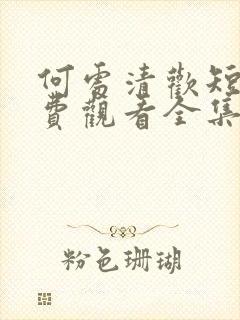 何處清歡短
費觀看全集
粉色珊瑚